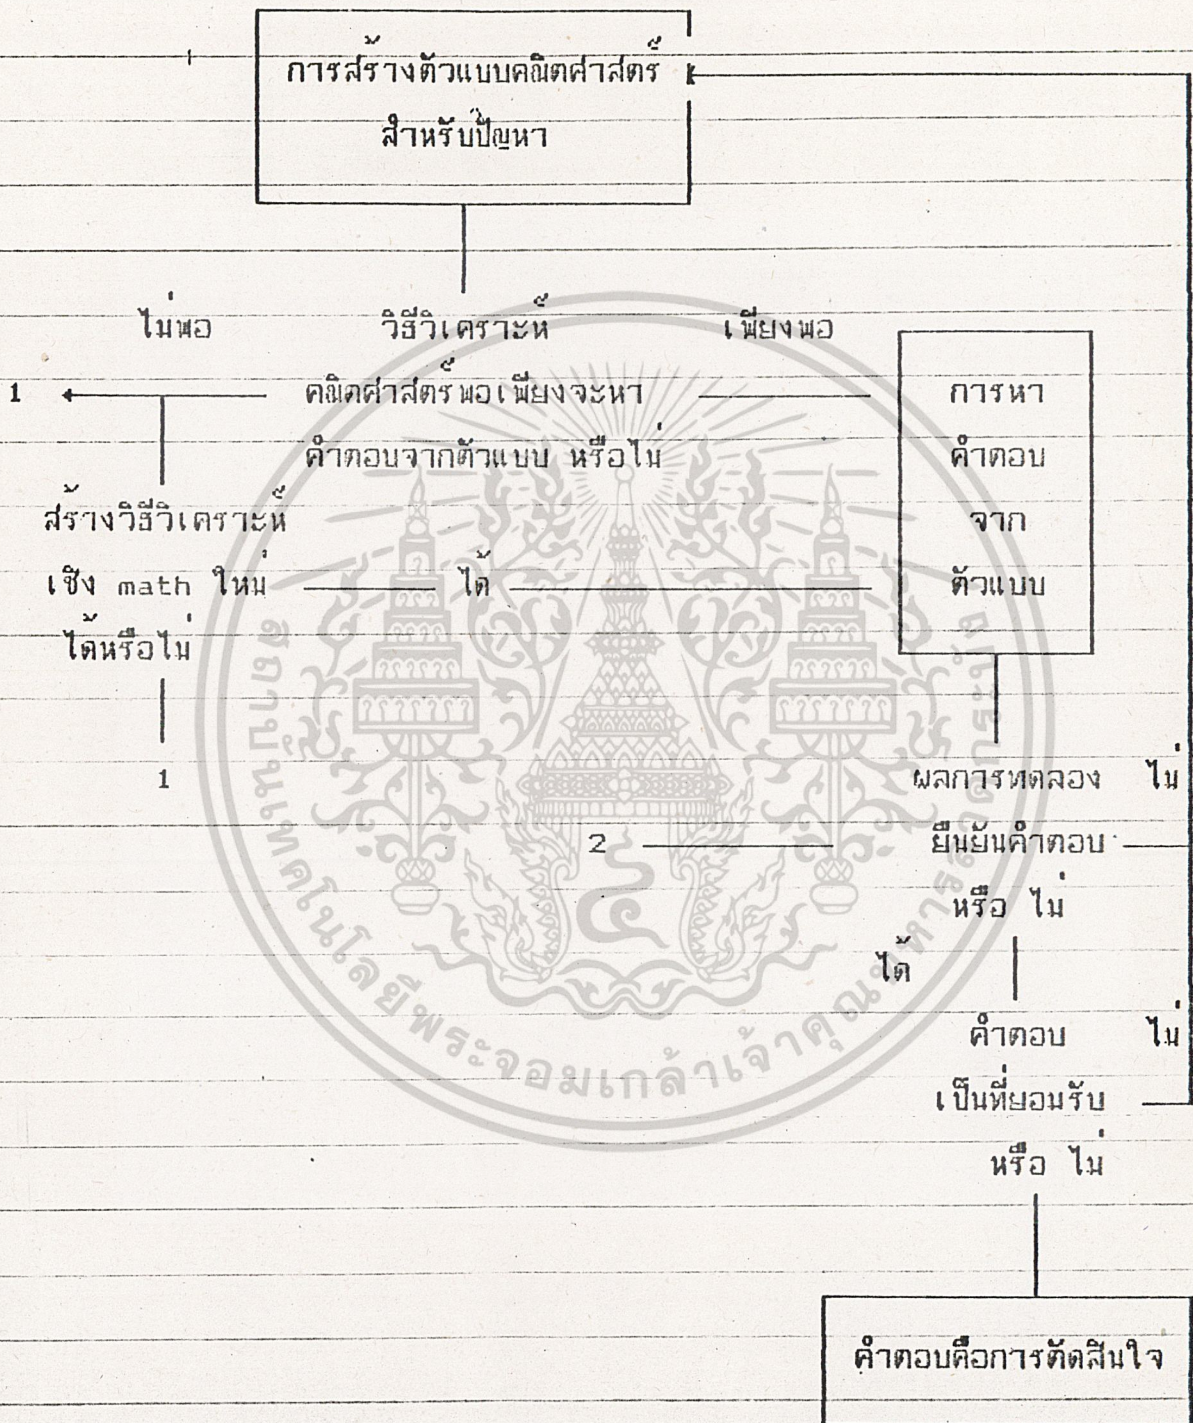 การสร้างตัวแบบคณิตศาสตร์
สำหรับปัญหา
ไม่พอ วิธีวิเคราะห์ เพียงพอ
1 คณิตศาสตร์พอเพียงจะหา การหา
คำตอบจากตัวแบบ หรือไม่ คำตอบ
สร้างวิธีวิเคราะห์ จาก
เชิง math ใหม่ ได้ ตัวแบบ
ได้หรือไม่
1 ผลการทดลอง ไม่
2 ยืนยันคำตอบ
หรือ ไม่
ได้
คำตอบ ไม่
เป็นที่ยอมรับ
หรือ ไม่
คำตอบคือการตัดสินใจ
สถาบันเทคโนโลยีพระจอมเกล้าเจ้าคุณทหารลาดกระบัง